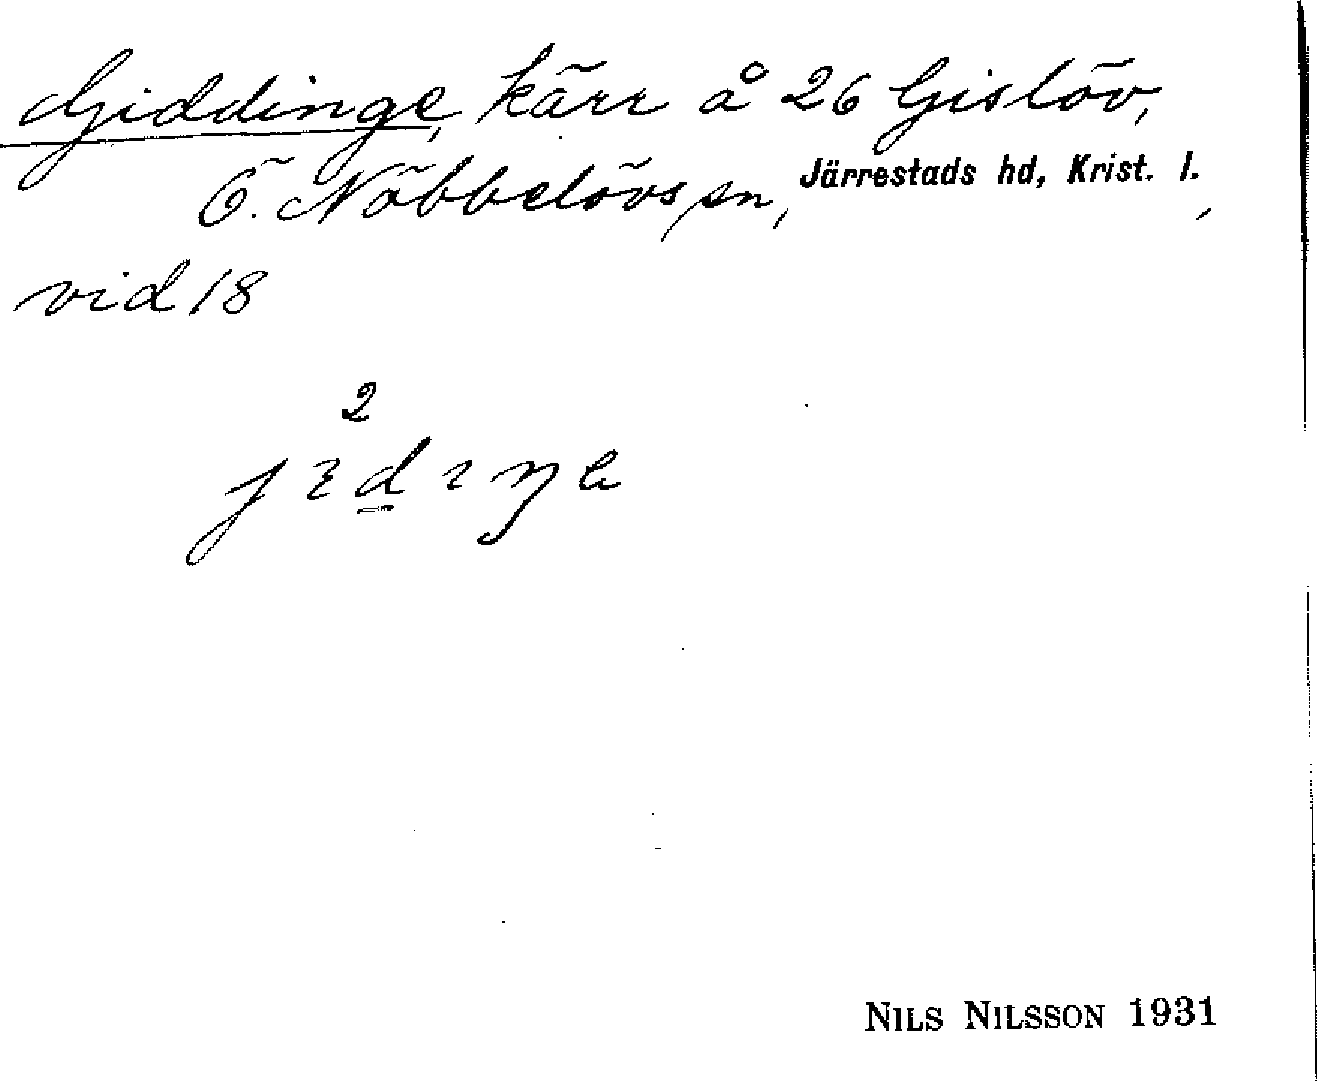 Giddinge, kärr å 26 Gislöv,
Ö. Nöbbelövs sn, Järrestads hd, Krist. l.,
vid 18
2
jɪdɪŋe
NILS NILSSON 1931